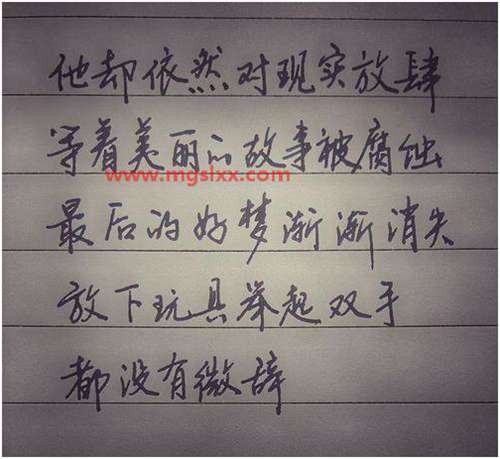 他却依然对现实放肆
等着美丽的故事被腐蚀
www.mgslxx.com
最后的好梦渐渐消失
放下玩具举起双手
都没有微辞